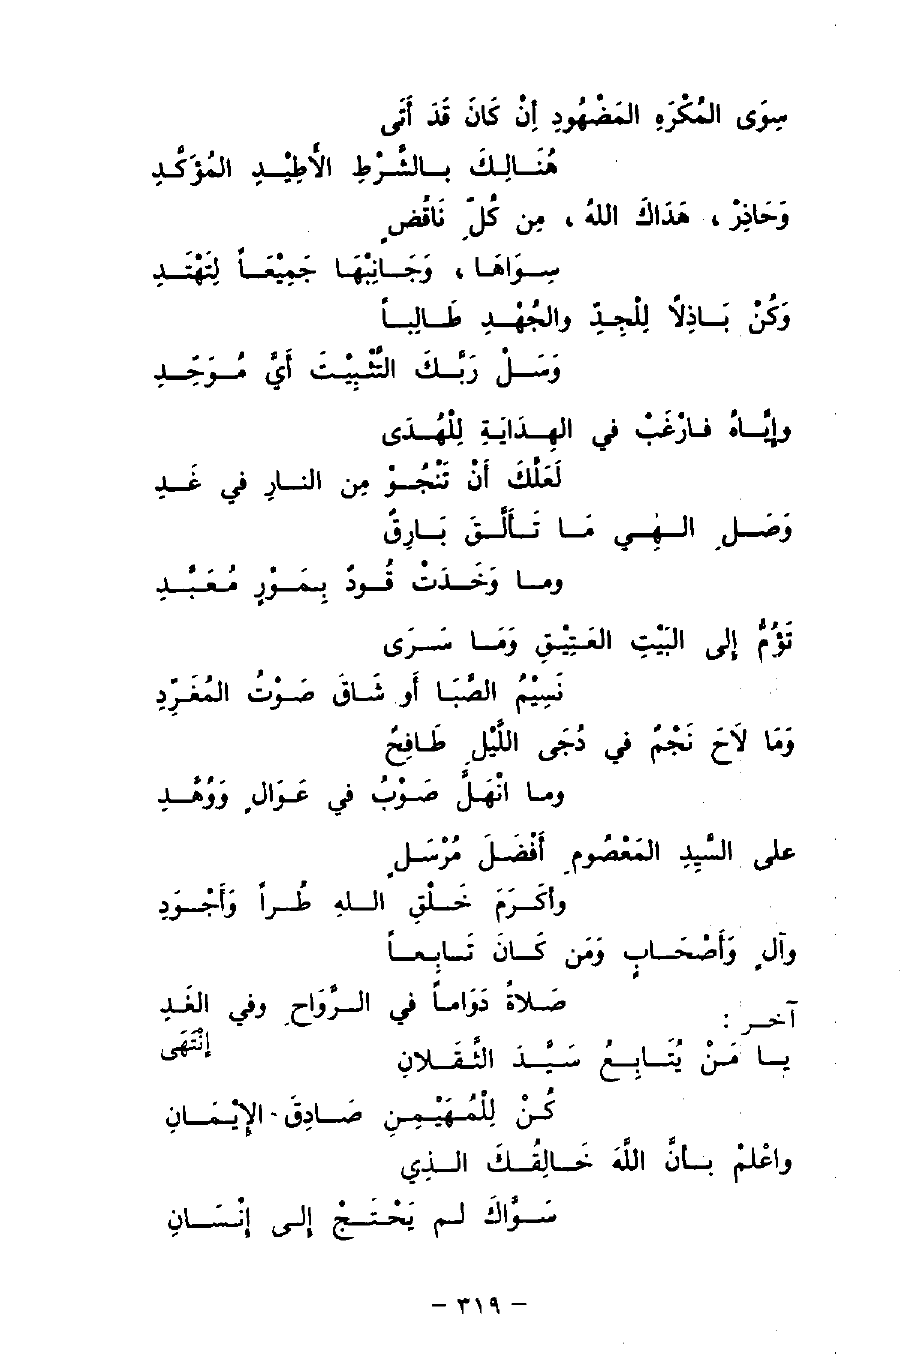 سِوَى المُكْرَهِ المَضْهُودِ إِنْ كَانَ قَدَ أَتَى
هُنَالِكَ بالشَّرْطِ الأَطِيْدِ المُؤَكَّدِ
وَحَاذِرْ ، هَدَاكَ اللهُ ، مِن كُلِّ نَاقُضٍ
سِوَاهَا ، وَجَانِبْهَا جَمِيْعَاً لِتَهْتَدِ
وَكُنْ بَاذِلاً لِلْجِدِّ والجُهْدِ طَالِباً
وَسَلْ رَبَّكَ التَّثْبِيْتَ أَيُّ مُوَحِّدِ
وإيَّاهُ فارْغَبْ في الهِدَايَةِ لِلْهُدَى
لَعَلَّكَ أَنْ تَنْجُوْ مِن النارِ في غَدِ
وَصَلِ الهِي مَا تَأَلَّقَ بَارِقٌ
وما وَخَدَتْ قُودٌ بِمَوْرٍ مُعَبَّدِ
تَؤُمُّ إِلى البَيْتِ العَتِيْقِ وَمَا سَرَى
نَسِيْمُ الصَّبَا أَو شَاقَ صَوْتُ المُغَرِّدِ
وَمَا لاَحَ نَجْمٌ في دُجَى اللَّيْلِ طَافِحٌ
وما انْهَلَّ صَوْبٌ في عَوَالٍ وَوُهَّدِ
على السَّيِدِ المَعْصُومِ أَفْضَلَ مُرْسَلٍ
وأكَرَمَ خَلْقِ اللهِ طُراً وَأَجْوَدِ
وآلٍ وَأَصْحَابٍ وَمَن كَانَ تَابِعاً
صَلاةً دَوَاماً في الرَّوَاحِ وفي الغَدِ
إِنْتَهَى
آخر :
يا مَنْ يُتَابِعُ سَيِّدَ الثَّقَلانِ
كُنْ لِلْمُهَيْمِنِ صَادِقَ الإِيْمَانِ
واعْلمْ بأنَّ اللَّهَ خَالِقُكَ الذِي
سَوَّاكَ لم يَحْتَجْ إِلى إِنْسَانِ
- ٣١٩ -